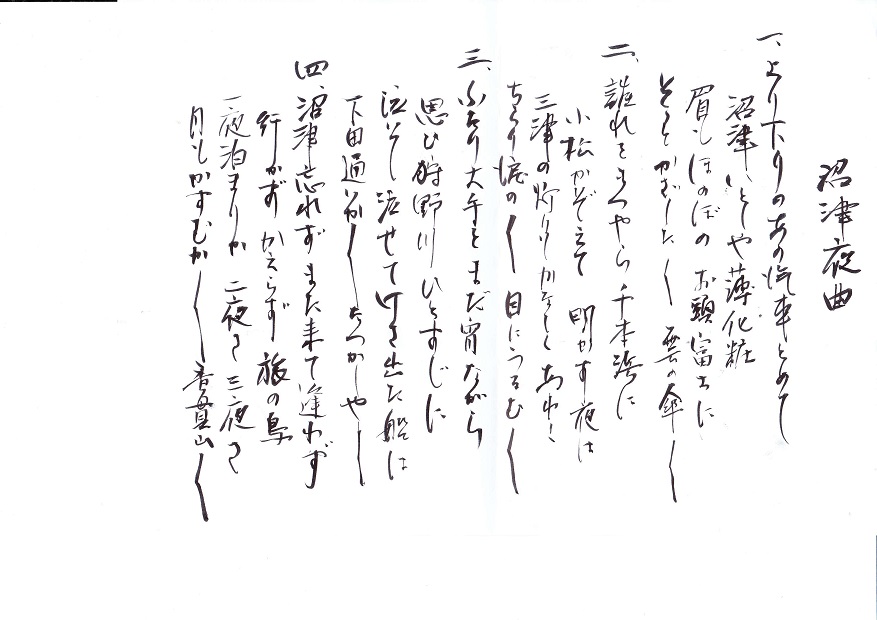 沼津夜曲
一、上り下りのあの汽車とめて
沼津いとしや薄化粧
眉もほのぼの お顔富士に
そっとかざした〱 雲の傘〱
二、誰れをまつやら千本浜に
小松かぞえて 明かす夜は
三津の灯りもかなしくあわく
ちらり涙の〱 目にうるむ〱
三、ふたり大手をまだ宵ながら
思ひ狩野川ひとすじに
泣いて泣せて けさ出た船は
下田通いか〱 なつかしや〱
四、沼津忘れずまた来て逢わず
行かず かえらず 旅の鳥
一夜泊まりか 二夜さ三夜さ
月もかすむか〱 香貫山〱